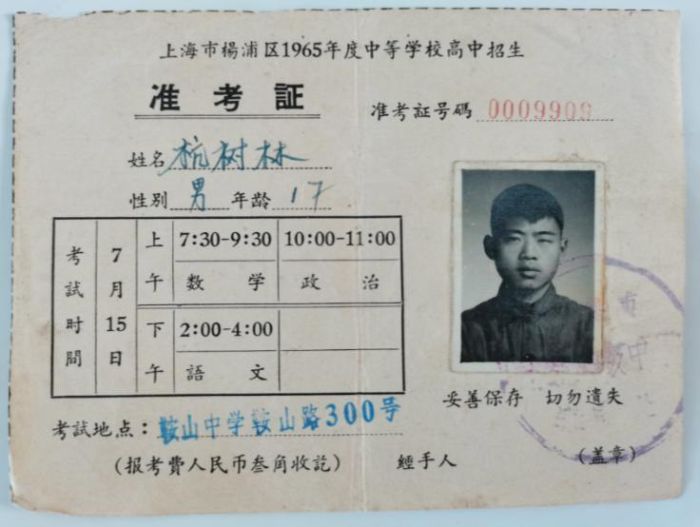 上海市楊浦区1965年度中等学校高中招生
准考証
准考証号碼 0009909
姓名 杭树林
性別 男 年齡 17
考試时間 7月15日 上午 7:30-9:30 10:00-11:00
数学 政治
下午 2:00-4:00
語文
妥善保存 切勿遺失
考試地点：鞍山中学鞍山路300号
(报考費人民币叁角收訖) 經手人 (盖章)